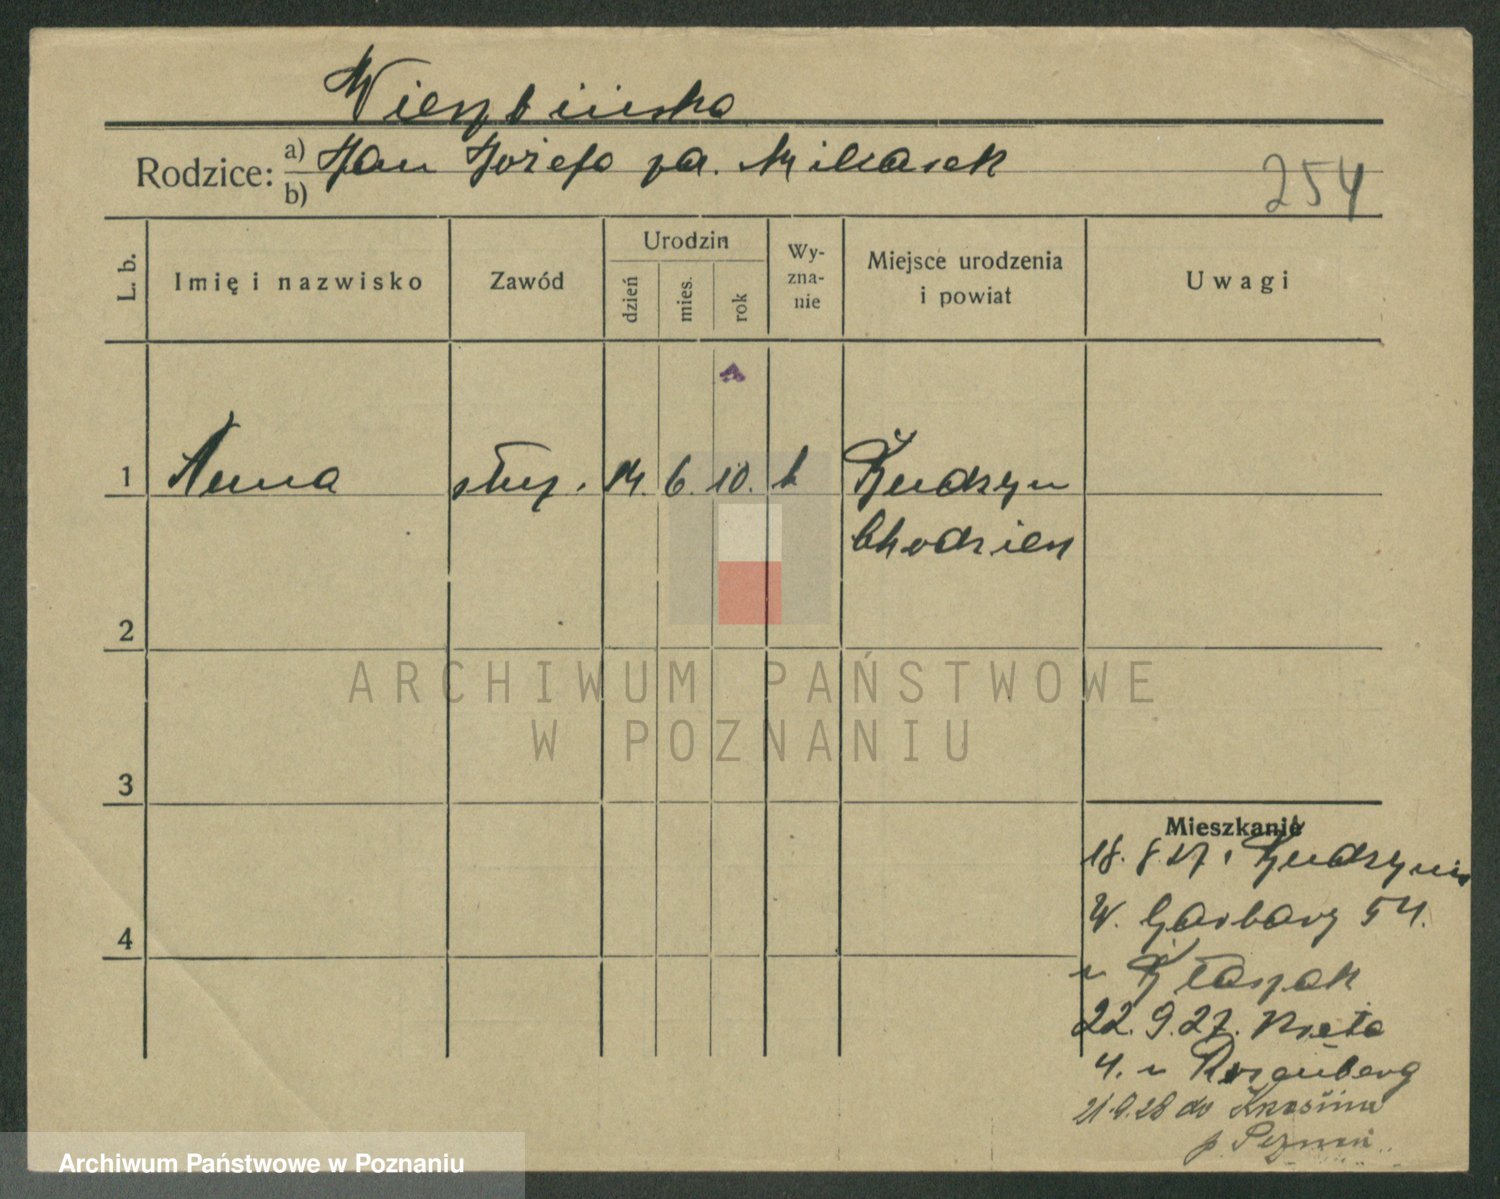 Wierzbińska
Rodzice: a) Jan Józefa za. Mikasek
b)
254
L. b.
Imię i nazwisko
Zawód
Urodzin
dzień
mies.
rok
Wy-
zna-
nie
Miejsce urodzenia
i powiat
Uwagi
1
Anna
służ.
14. 6. 10.
k
Budzyn
Chodzież
2
3
4
Mieszkanie
18. 8 27. z Budzynia
W. Garbary 54.
u
22. 9. 27.
4. u Rosenberg
21.9.28 do
p. Poznań
ARCHIWUM PAŃSTWOWE
W POZNANIU
Archiwum Państwowe w Poznaniu